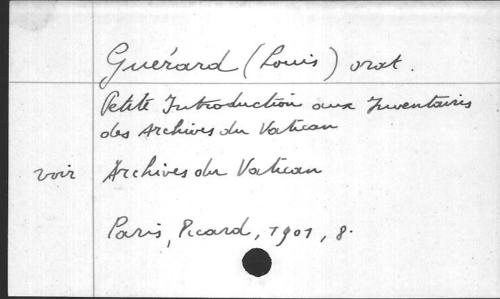 Guérard (Louis) orat.
Petite Introduction aux Inventaires
des Archives du Vatican
voir Archives du Vatican
Paris, Picard, 1901, 8.